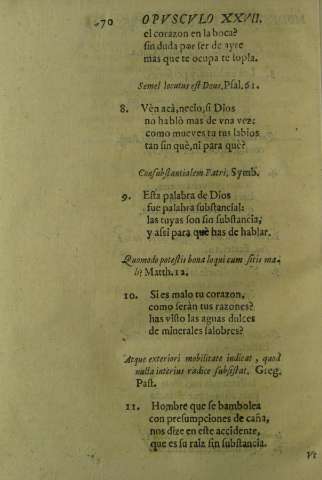 70 OPVSCVLO XXVII.
el corazon en la boca?
sin duda por ser de ayre
mas que te ocupa te sopla.
Semel locutus est Deus, Psal. 61.
8. Vèn acà, necio, si Dios
no hablò mas de vna vez;
como mueves tu tus labios
tan sin què, ni para què?
Consubstantialem Patri, Symb.
9. Esta palabra de Dios
fue palabra substancial:
las tuyas son sin substancia,
y assi para què has de hablar.
Quomodo potestis bona loqui cum sitis ma-
li? Matth. 12.
10. Si es malo tu corazon,
como seràn tus razones?
has visto las aguas dulces
de minerales salobres?
Atque exteriori mobilitate indicat, quod
nulla interius radice subsistat. Greg.
Past.
11. Hombre que se bambolea
con presumpciones de caña,
nos dize en este accidente,
que es su raìz sin substancia.
Vt